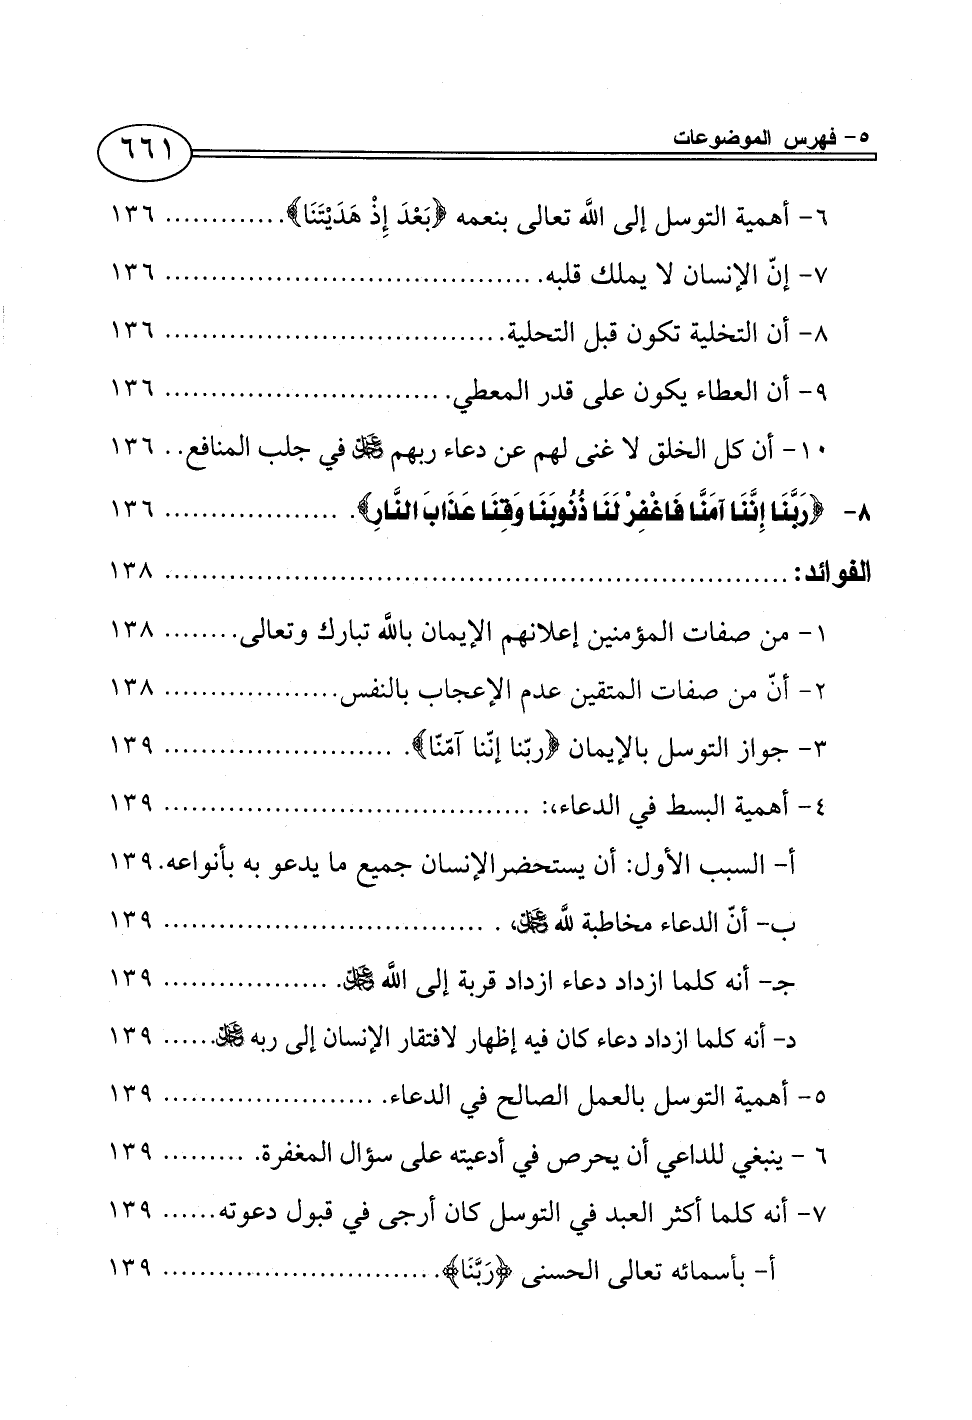 ٥- فهرس الموضوعات
٦٦١
٦- أهمية التوسل إلى الله تعالى بنعمه ﴿بَعْدَ إِذْ هَدَيْتَنَا﴾. ............ ١٣٦
٧- إنّ الإنسان لا يملك قلبه. ................................ ١٣٦
٨- أن التخلية تكون قبل التحلية. .................................... ١٣٦
٩- أن العطاء يكون على قدر المعطي. ............................. ١٣٦
١٠- أن كل الخلق لا غنى لهم عن دعاء ربهم ﷻ في جلب المنافع. . ١٣٦
٨- ﴿رَبَّنَا إِنَّنَا آمَنَّا فَاغْفِرْ لَنَا ذُنُوبَنَا وَقِنَا عَذَابَ النَّارِ﴾. ................... ١٣٦
الفوائد: .................................................................... ١٣٨
١- من صفات المؤمنين إعلانهم الإيمان بالله تبارك وتعالى. ........ ١٣٨
٢- أنّ من صفات المتقين عدم الإعجاب بالنفس. .................. ١٣٨
٣- جواز التوسل بالإيمان ﴿ربّنا إنّنا آمّنّا﴾. ......................... ١٣٩
٤- أهمية البسط في الدعاء،: ........................................ ١٣٩
أ- السبب الأول: أن يستحضر الإنسان جميع ما يدعو به بأنواعه. ١٣٩
ب- أنّ الدعاء مخاطبة لله ﷻ، . ................................... ١٣٩
جـ- أنه كلما ازداد دعاء ازداد قربة إلى الله ﷻ. .................. ١٣٩
د- أنه كلما ازداد دعاء كان فيه إظهار لافتقار الإنسان إلى ربه ﷻ. ..... ١٣٩
٥- أهمية التوسل بالعمل الصالح في الدعاء. ....................... ١٣٩
٦ - ينبغي للداعي أن يحرص في أدعيته على سؤال المغفرة. ......... ١٣٩
٧- أنه كلما أكثر العبد في التوسل كان أرجى في قبول دعوته ...... ١٣٩
أ- بأسمائه تعالى الحسنى ﴿رَبَّنَا﴾. ............................. ١٣٩